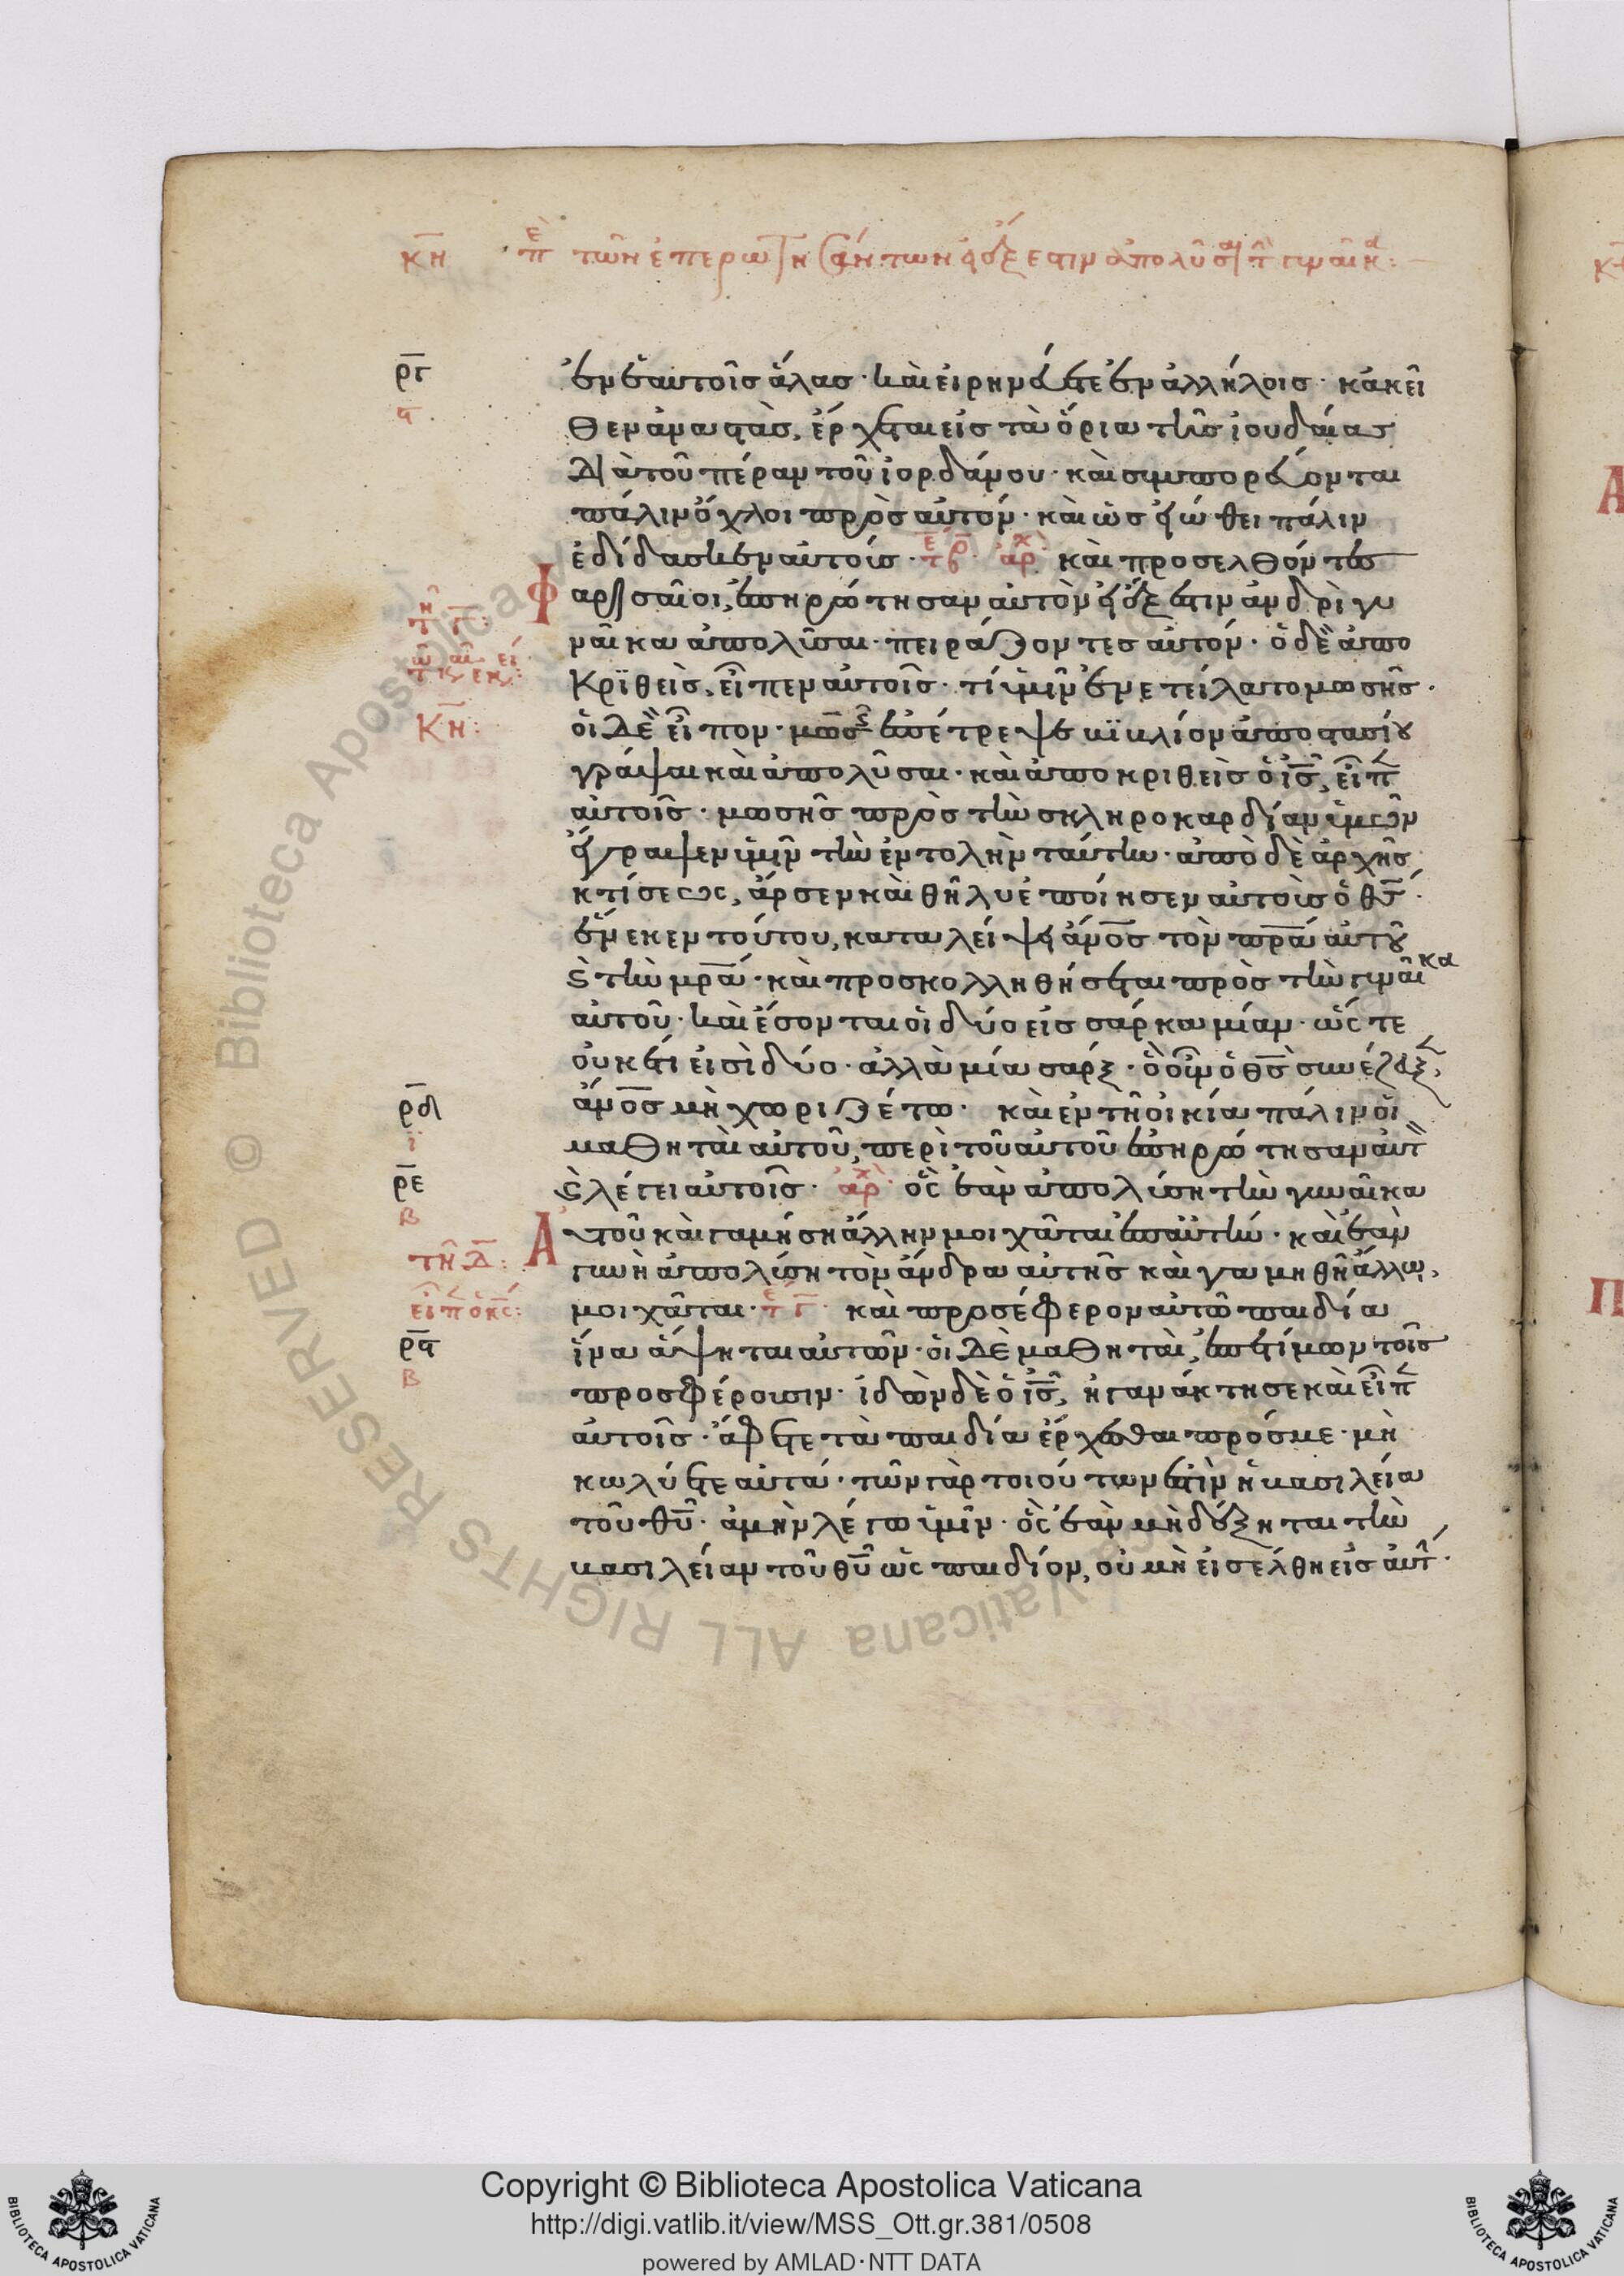 κη ἐπ τῶν ἐπερωτησάντων εἰ ἔξεστιν ἀπολῦσαι τ γυναῖκα:
ργ
ἐν ἑαυτοῖς ἅλας· καὶ εἰρηνεύετε ἐν ἀλλήλοις· κἀκεῖ
ϛ
θεν ἀναστὰς, ἔρχεται εἰς τὰ ὅρια τῆς ἰουδαίας
διὰ τοῦ πέραν τοῦ ἰορδάνου· καὶ συμπορεύονται
πάλιν ὄχλοι πρὸς αὐτόν· καὶ ὡς εἰώθει πάλιν
ἐδίδασκεν αὐτοίς· ἀρχ καὶ προσελθόντες
φαρισαῖοι, ἐπηρώτησαν αὐτὸν εἰ ἔξεστιν ἀνδρὶ γυ
ναῖκα ἀπολῦσαι· πειράζοντες αὐτόν· ὁ δὲ ἀπο
κριθεὶς, εἶπεν αὐτοῖς· τί ὑμῖν ἐνετείλατο μωσῆς·
κη:
οἱ δὲ εἶπον· μωσῆς ἐπέτρεψε βιβλίον ἀποστασίου
γράψαι καὶ ἀπολῦσαι· καὶ ἀποκριθεὶς ὁ ις, εἶπ
αὐτοῖς· μωσῆς πρὸς τὴν σκληροκαρδίαν ὑμῶν
ἔγραψεν ὑμῖν τὴν ἐντολὴν ταύτην· ἀπὸ δὲ ἀρχῆς
κτίσεως, ἄρσεν καὶ θῆλυ ἐποίησεν αὐτοὺς ὁ θς·
ἕνεκεν τούτου, καταλείψει ἄνος τὸν πρα αὐτοῦ
καὶ τὴν μρα· καὶ προσκολληθήσεται πρὸς τὴν γυναῖκα
αὐτοῦ· καὶ ἔσονται οἱ δύο εἰς σάρκα μίαν· ὥστε
οὐκέτι εἰσὶ δύο· ἀλλὰ μία σάρξ· ὃ οὖν ὁ θς συνέζευξ,
ρδ
ἄνος μὴ χωριζέτω· καὶ ἐν τῇ οἰκία πάλιν οἱ
ι
μαθηταὶ αὐτοῦ, περὶ τοῦ αὐτοῦ ἐπηρώτησαν αὐτ
ρε
καὶ λέγει αὐτοῖς· ἀρχ ὃς ἐὰν ἀπολύση τὴν γυναῖκα
β
αὐτοῦ καὶ γαμήση ἄλλην μοιχᾶται ἐπ αὐτήν· καὶ ἐὰν
τῆ δ:
γυνὴ ἀπολύση τὸν ἄνδρα αὐτῆς καὶ γαμηθῆ ἄλλω,
εἶπ ὁ κς:
μοιχᾶται· καὶ προσέφερον αὐτῶ παιδία
ρϛ
ἵνα ἅψηται αὐτῶν· οἱ δὲ μαθηταὶ, ἐπετίμων τοῖς
β
προσφέρουσιν· ἰδὼν δὲ ὁ ις, ἠγανάκτησε καὶ εἶπ
αὐτοῖς· ἄφετε τὰ παιδία ἔρχεσθαι πρός με· μὴ
κωλύετε αὐτά· τῶν γὰρ τοιούτων ἐστὶν ἡ βασιλεία
τοῦ θυ· ἀμὴν λέγω ὑμῖν· ὃς ἐὰν μὴ δέξηται τὴν
βασιλείαν τοῦ θυ ὡς παιδίον, οὐ μὴ εἰσέλθη εἰς αὐτ·
© Biblioteca Apostolica Vaticana ALL RIGHTS RESERVED
BIBLIOTECA APOSTOLICA VATICANA
Copyright © Biblioteca Apostolica Vaticana
http://digi.vatlib.it/view/MSS_Ott.gr.381/0508
powered by AMLAD·NTT DATA
BIBLIOTECA APOSTOLICA VATICANA